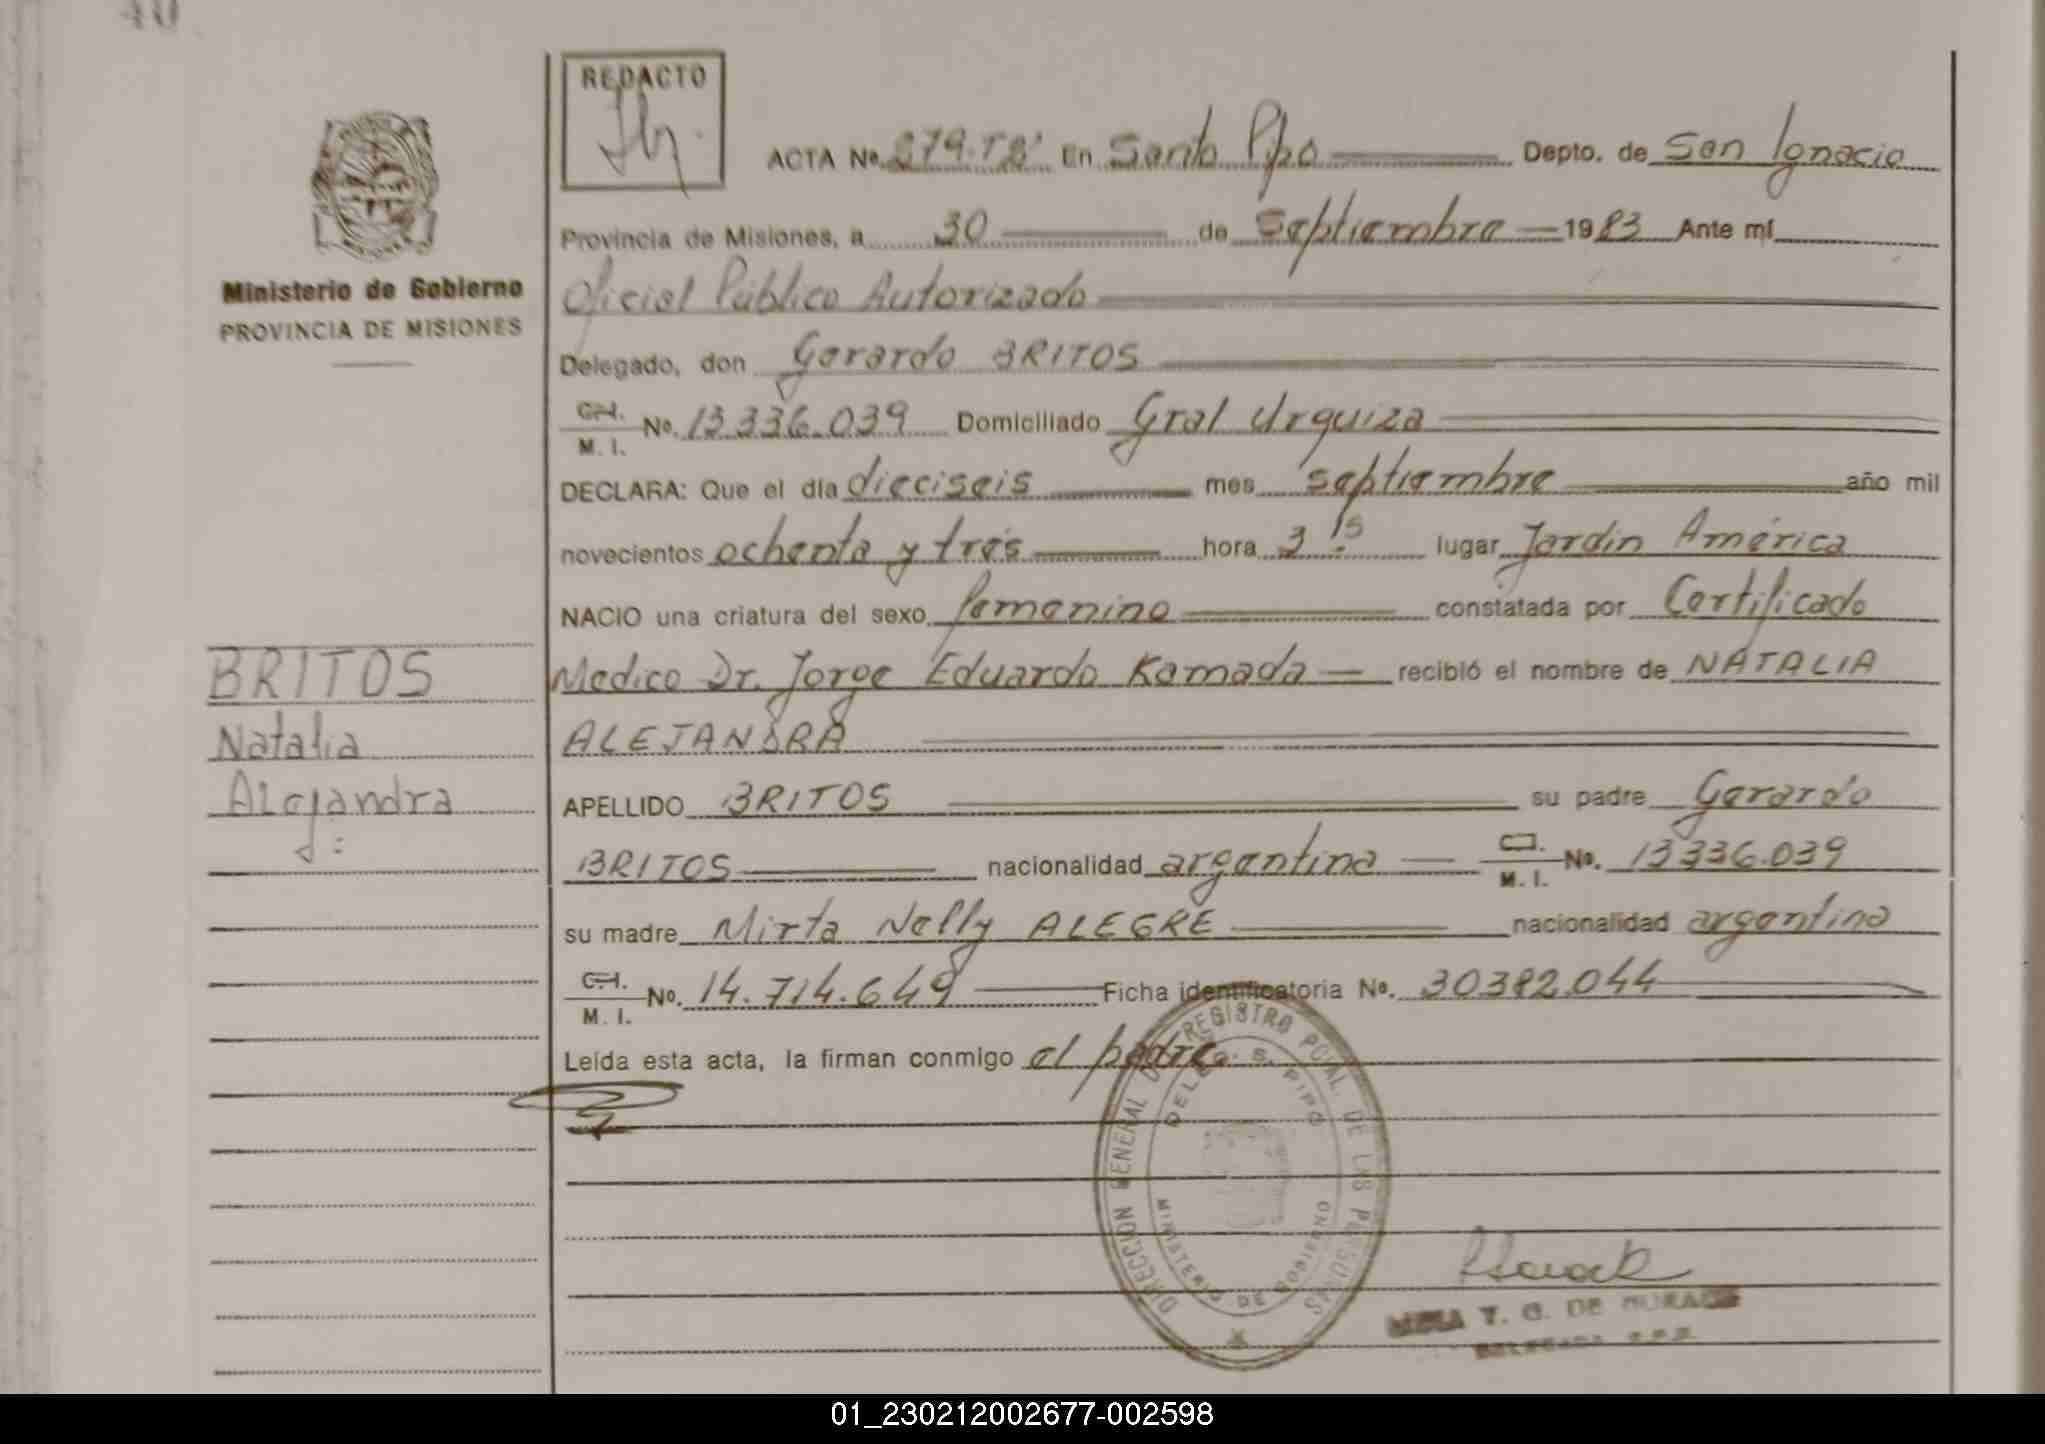 REDACTO
ACTA No. 279.Tº8º En Santo Pipo Depto. de San Ignacio
Provincia de Misiones, a 30 de Septiembre 1983 Ante mí
Oficial Público Autorizado
Delegado, don Gerardo BRITOS
C.I. M. I. No. 13.336.039 Domiciliado Gral Urquiza
DECLARA: Que el día dieciseis mes septiembre año mil
novecientos ochenta y tres hora 3 15 lugar Jardín América
NACIO una criatura del sexo femenino constatada por Certificado
Medico Dr. Jorge Eduardo Kamada recibió el nombre de NATALIA
ALEJANDRA
APELLIDO BRITOS su padre Gerardo
BRITOS nacionalidad argentina C.I. M. I. No. 13336.039
su madre Mirta Nelly ALEGRE nacionalidad argentina
C.I. M. I. No. 14.714.649 Ficha identificatoria No. 30382.044
Leída esta acta, la firman conmigo el padre
Ministerio de Gobierno
PROVINCIA DE MISIONES
BRITOS
Natalia
Alejandra
DIRECCION GENERAL DE REGISTRO PCIAL. DE LAS PERSONAS
DELEG. S. PIPO
MINISTERIO DE GOBIERNO
T. G. DE
01_230212002677-002598